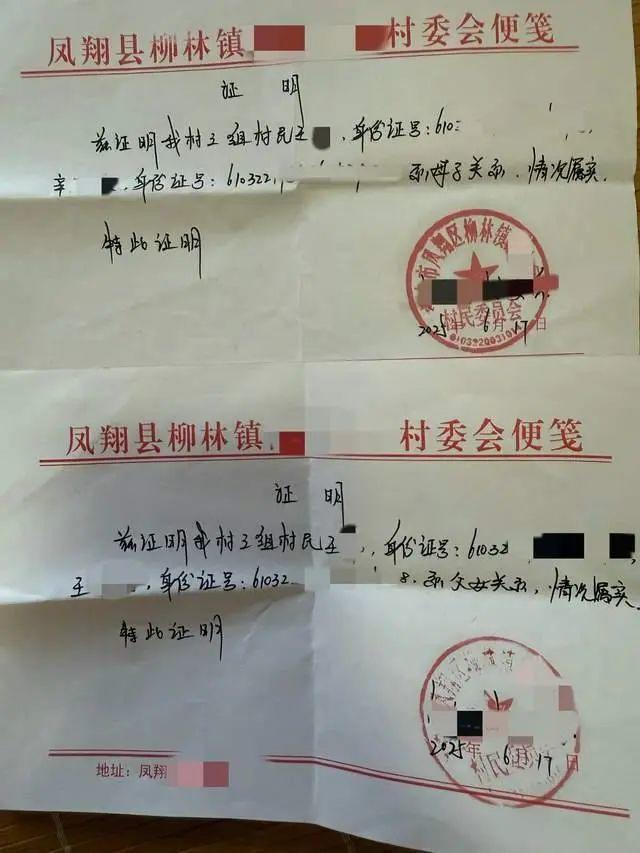 凤翔县柳林镇 村委会便笺
证 明
兹证明我村三组村民王 ,身份证号:610
辛 ,身份证号:610322, 系母子关系,情况属实.
特此证明
市凤翔区柳林镇
村民委员会
2025年6月17日
凤翔县柳林镇 村委会便笺
证 明
兹证明我村三组村民王 ,身份证号:61032
王 ,身份证号:61032 8.系父女关系,情况属实.
特此证明
村民
2025年6月17日
地址:凤翔